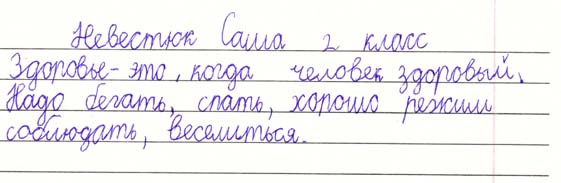 Невестюк Саша 2 класс
Здоровье - это, когда человек здоровый.
Надо бегать, спать, хорошо режим
соблюдать, веселиться.